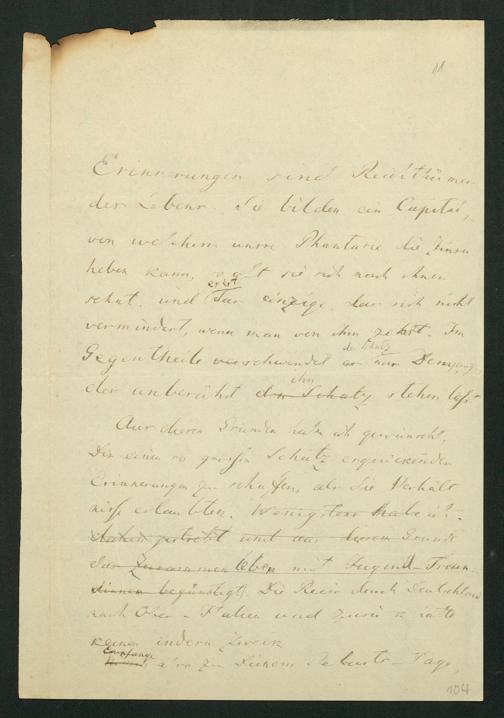 11
Erinnerungen sind Reichthümer
des Lebens. Sie bilden ein Capital,
von welchem unsre Phantasie die Zinsen
heben kann, so oft sie sich nach ihnen
sehnt, und
erst
das einzige, das sich nicht
vermindert, wenn man von ihm zehrt. Im
Gegentheile verschwindet er nur Demjenigen,
der Schatz
der unberührt den Schatz stehen läßt.
ihn
Aus diesen Gründen habe ich gewünscht,
Dir einen so großen Schatz erquickender
Erinnerungen zu schaffen, als die Verhält
nisse erlaubten. Wenigstens habe ich
gestrebt und aus diesem Grunde
das Zusammenleben mit Jugend-Freun
dinnen begünstigt. Die Reise durch Deutschland
nach Ober-Italien und zurück hatte
keinen andern Zweck
Empfange
also zu Deinem Geburts-Tage
104